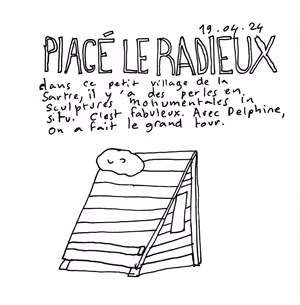 19.04.24
PIACÉ LE RADIEUX
dans ce petit village de la
Sartre, il y'a des perles en
sculptures monumentales in
situ. C'est fabuleux. Avec Delphine,
on a fait le grand tour.